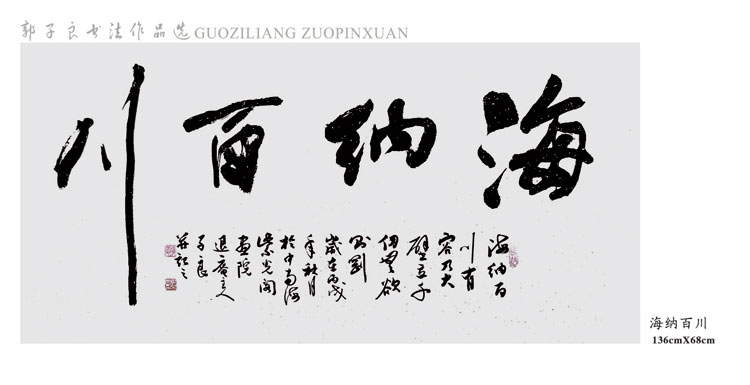 郭子良书法作品选GUOZILIANG ZUOPINXUAN
海纳百川
海纳百
川有
容乃大
壁立千
仞无欲
则刚
岁在丙戌
年秋月
於中南海
紫光阁
画院
退庵主人
子良
并记之
海纳百川
136cmX68cm